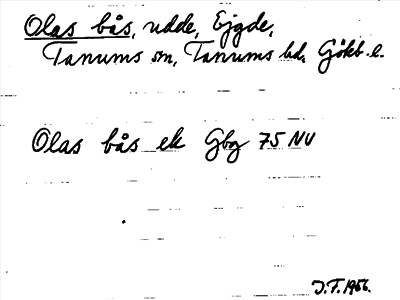 Olas bås, udde, Ejgde,
Tanums sn, Tanums hd, Gökb. l.
Olas bås ek Gbg 75 NV
J.F. 1956.